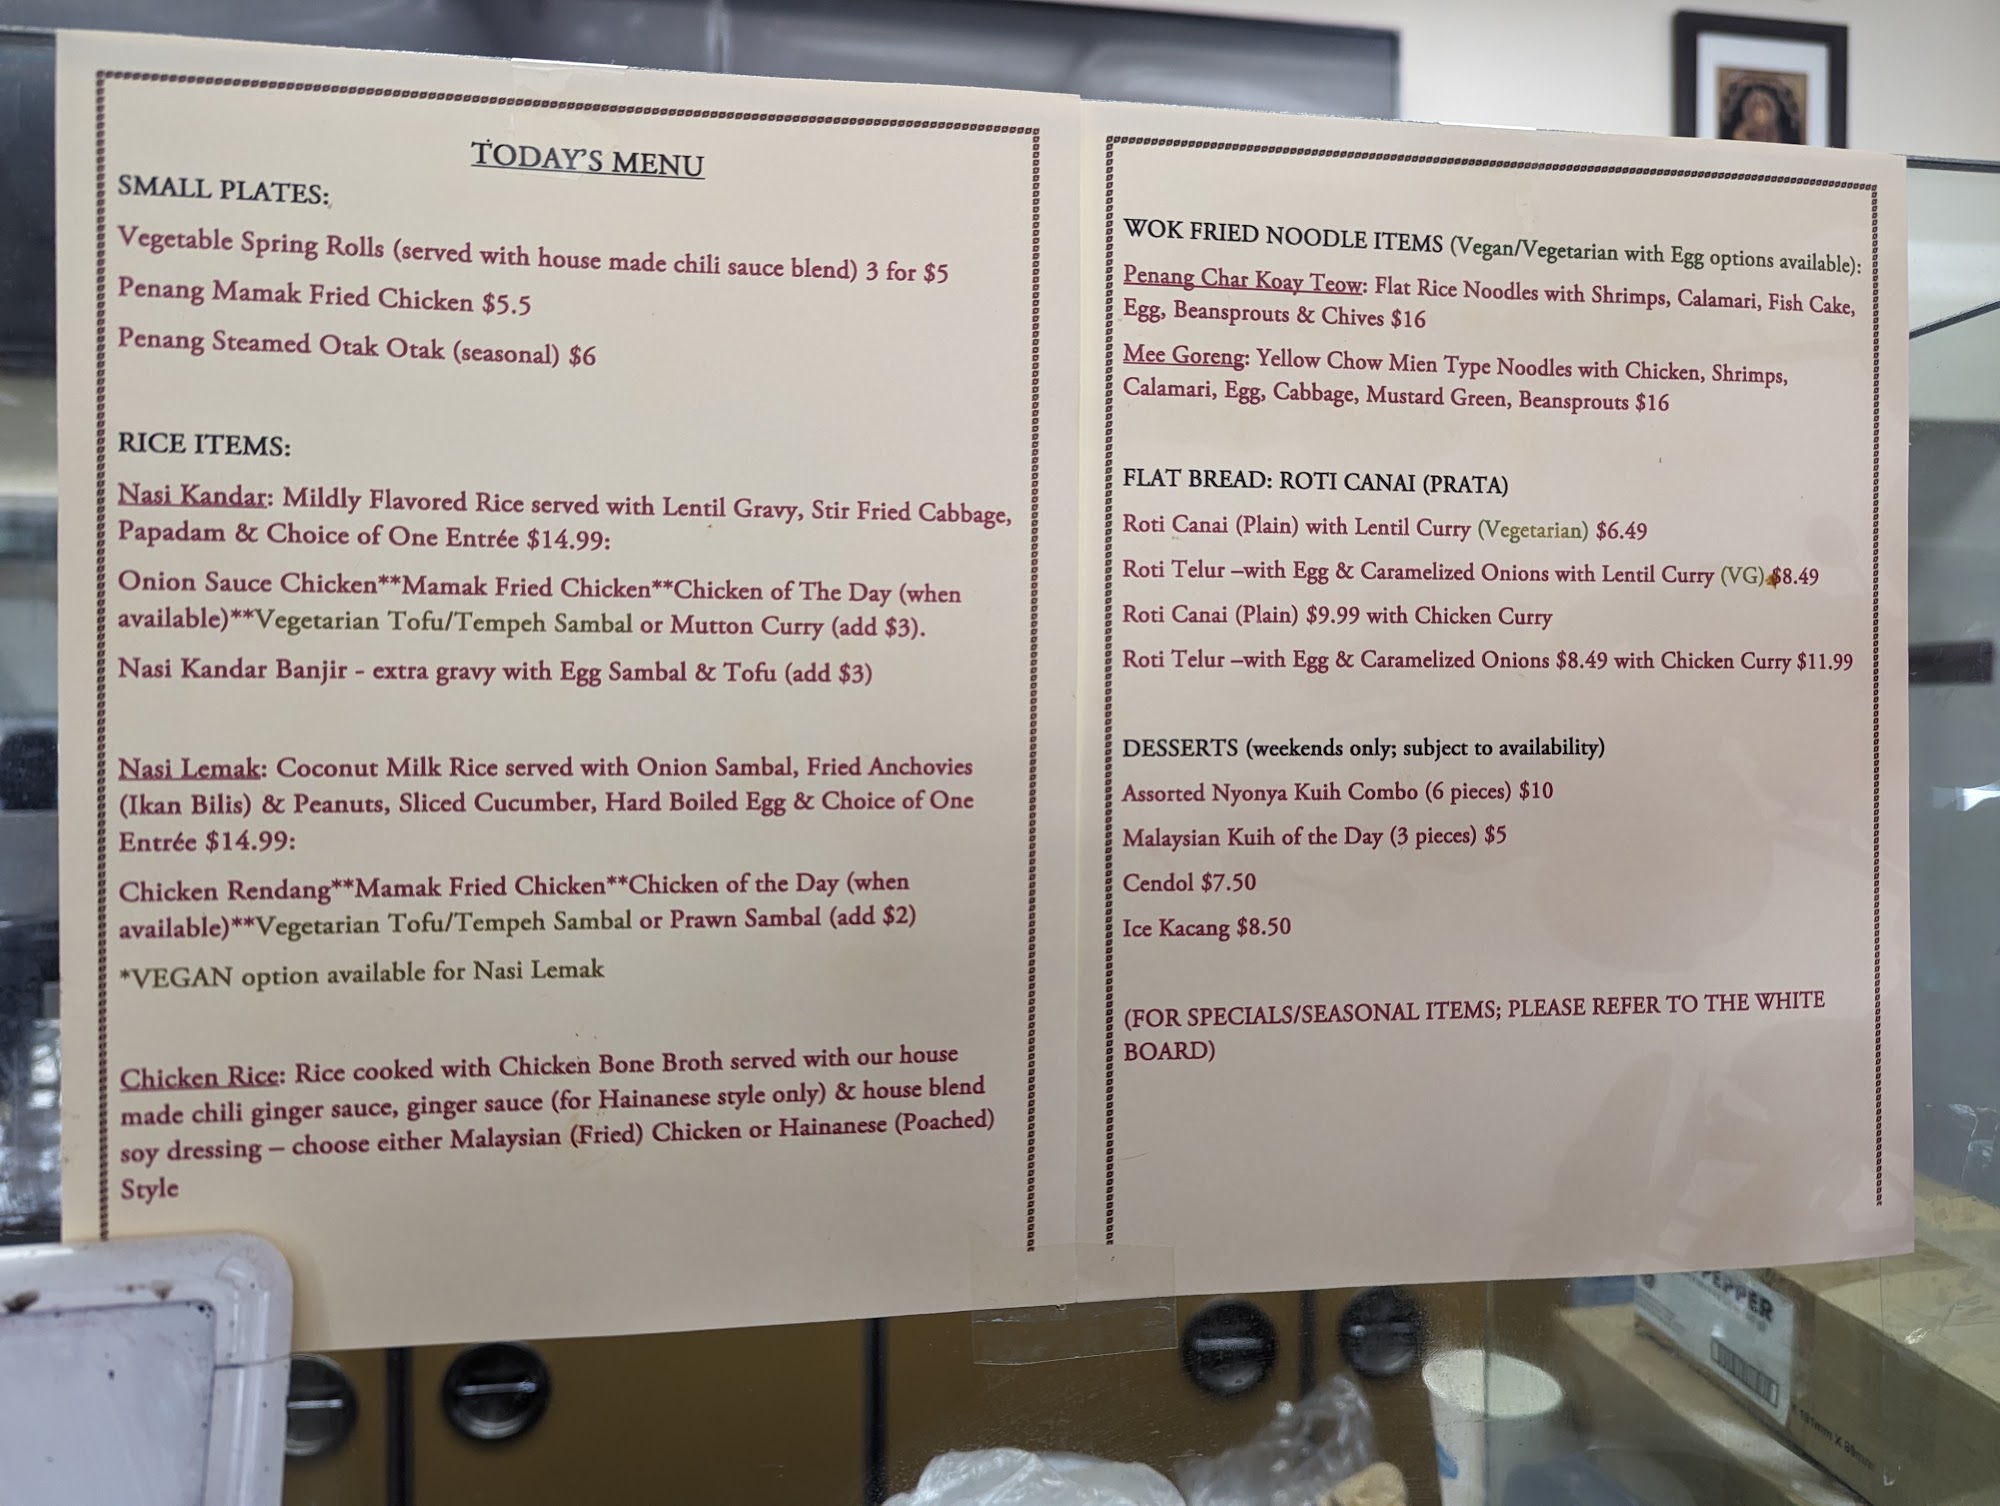 TODAY'S MENU
SMALL PLATES:
Vegetable Spring Rolls (served with house made chili sauce blend) 3 for $5
Penang Mamak Fried Chicken $5.5
Penang Steamed Otak Otak (seasonal) $6
RICE ITEMS:
Nasi Kandar: Mildly Flavored Rice served with Lentil Gravy, Stir Fried Cabbage,
Papadam & Choice of One Entrée $14.99:
Onion Sauce Chicken**Mamak Fried Chicken**Chicken of The Day (when
available)**Vegetarian Tofu/Tempeh Sambal or Mutton Curry (add $3).
Nasi Kandar Banjir - extra gravy with Egg Sambal & Tofu (add $3)
Nasi Lemak: Coconut Milk Rice served with Onion Sambal, Fried Anchovies
(Ikan Bilis) & Peanuts, Sliced Cucumber, Hard Boiled Egg & Choice of One
Entrée $14.99:
Chicken Rendang**Mamak Fried Chicken**Chicken of the Day (when
available)**Vegetarian Tofu/Tempeh Sambal or Prawn Sambal (add $2)
*VEGAN option available for Nasi Lemak
Chicken Rice: Rice cooked with Chicken Bone Broth served with our house
made chili ginger sauce, ginger sauce (for Hainanese style only) & house blend
soy dressing – choose either Malaysian (Fried) Chicken or Hainanese (Poached)
Style
WOK FRIED NOODLE ITEMS (Vegan/Vegetarian with Egg options available):
Penang Char Koay Teow: Flat Rice Noodles with Shrimps, Calamari, Fish Cake,
Egg, Beansprouts & Chives $16
Mee Goreng: Yellow Chow Mien Type Noodles with Chicken, Shrimps,
Calamari, Egg, Cabbage, Mustard Green, Beansprouts $16
FLAT BREAD: ROTI CANAI (PRATA)
Roti Canai (Plain) with Lentil Curry (Vegetarian) $6.49
Roti Telur –with Egg & Caramelized Onions with Lentil Curry (VG) $8.49
Roti Canai (Plain) $9.99 with Chicken Curry
Roti Telur –with Egg & Caramelized Onions $8.49 with Chicken Curry $11.99
DESSERTS (weekends only; subject to availability)
Assorted Nyonya Kuih Combo (6 pieces) $10
Malaysian Kuih of the Day (3 pieces) $5
Cendol $7.50
Ice Kacang $8.50
(FOR SPECIALS/SEASONAL ITEMS; PLEASE REFER TO THE WHITE
BOARD)